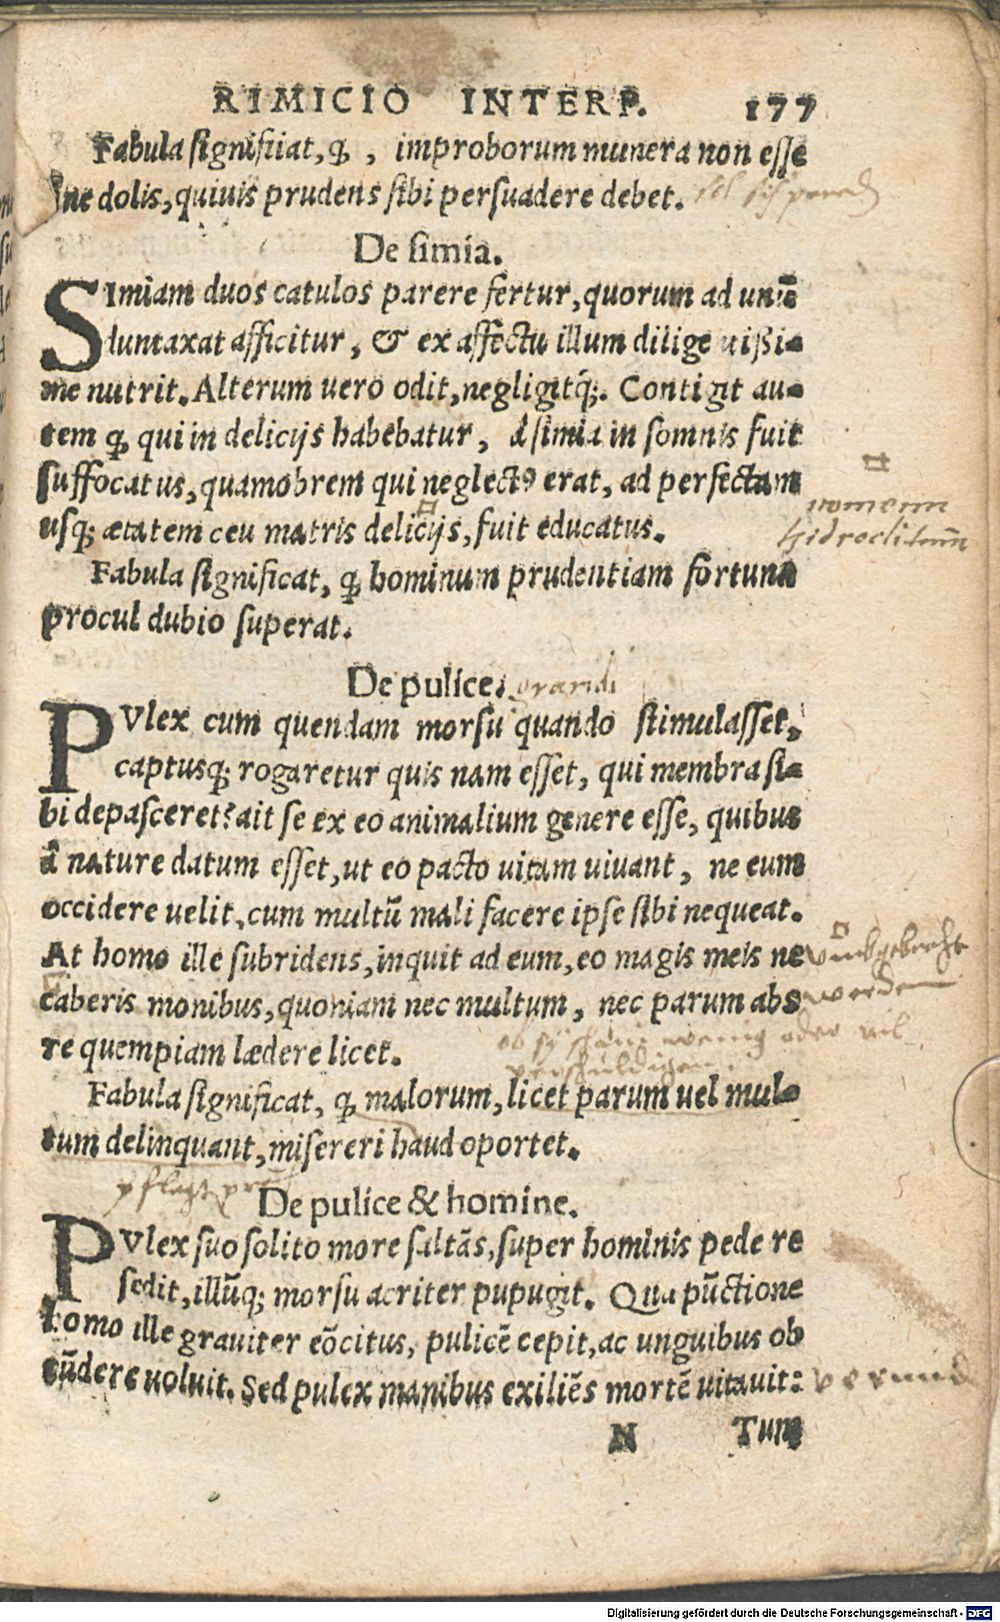 RIMICIO INTERP. 177
Fabula signifiiat, ꝙ, improborum munera non esse
ne dolis, quiuis prudens sibi persuadere debet.
De simia.
SImiam duos catulos parere fertur, quorum ad unũ
duntaxat afficitur, & ex affectu illum dilige tißi-
me nutrit. Alterum uero odit, negligitq́;. Contigit au-
tem ꝙ qui in delicijs habebatur, à simia in somnis fuit
suffocatus, quamobrem qui neglectꝰ erat, ad perfectam
usq; ætatem ceu matris delicijs, fuit educatus.
nomenn
hidroclitum̃
Fabula significat, ꝙ hominum prudentiam fortuna
procul dubio superat.
De pulice. grandi
PVlex cum quendam morsu quando stimulasset,
captusq; rogaretur quis nam esset, qui membra si-
bi depasceret? ait se ex eo animalium genere esse, quibus
à nature datum esset, ut eo pacto uitam uiuant, ne eum
occidere uelit, cum multũ mali facere ipse sibi nequeat.
At homo ille subridens, inquit ad eum, eo magis meis ne
caberis monibus, quoniam nec multum, nec parum abs
werden
re quempiam lædere licet.
wenig oder vil
Fabula significat, ꝙ malorum, licet parum uel mul-
tum delinquant, misereri haud oportet.
De pulice & homine.
PVlex suo solito more saltãs, super hominis pede re
sedit, illũq; morsu acriter pupugit. Qua pũctione
homo ille grauiter cõcitus, pulicẽ cepit, ac unguibus ob
tũdere uoluit. Sed pulex manibus exiliẽs mortẽ uitauit:
N Tum
Digitalisierung gefördert durch die Deutsche Forschungsgemeinschaft - DFG